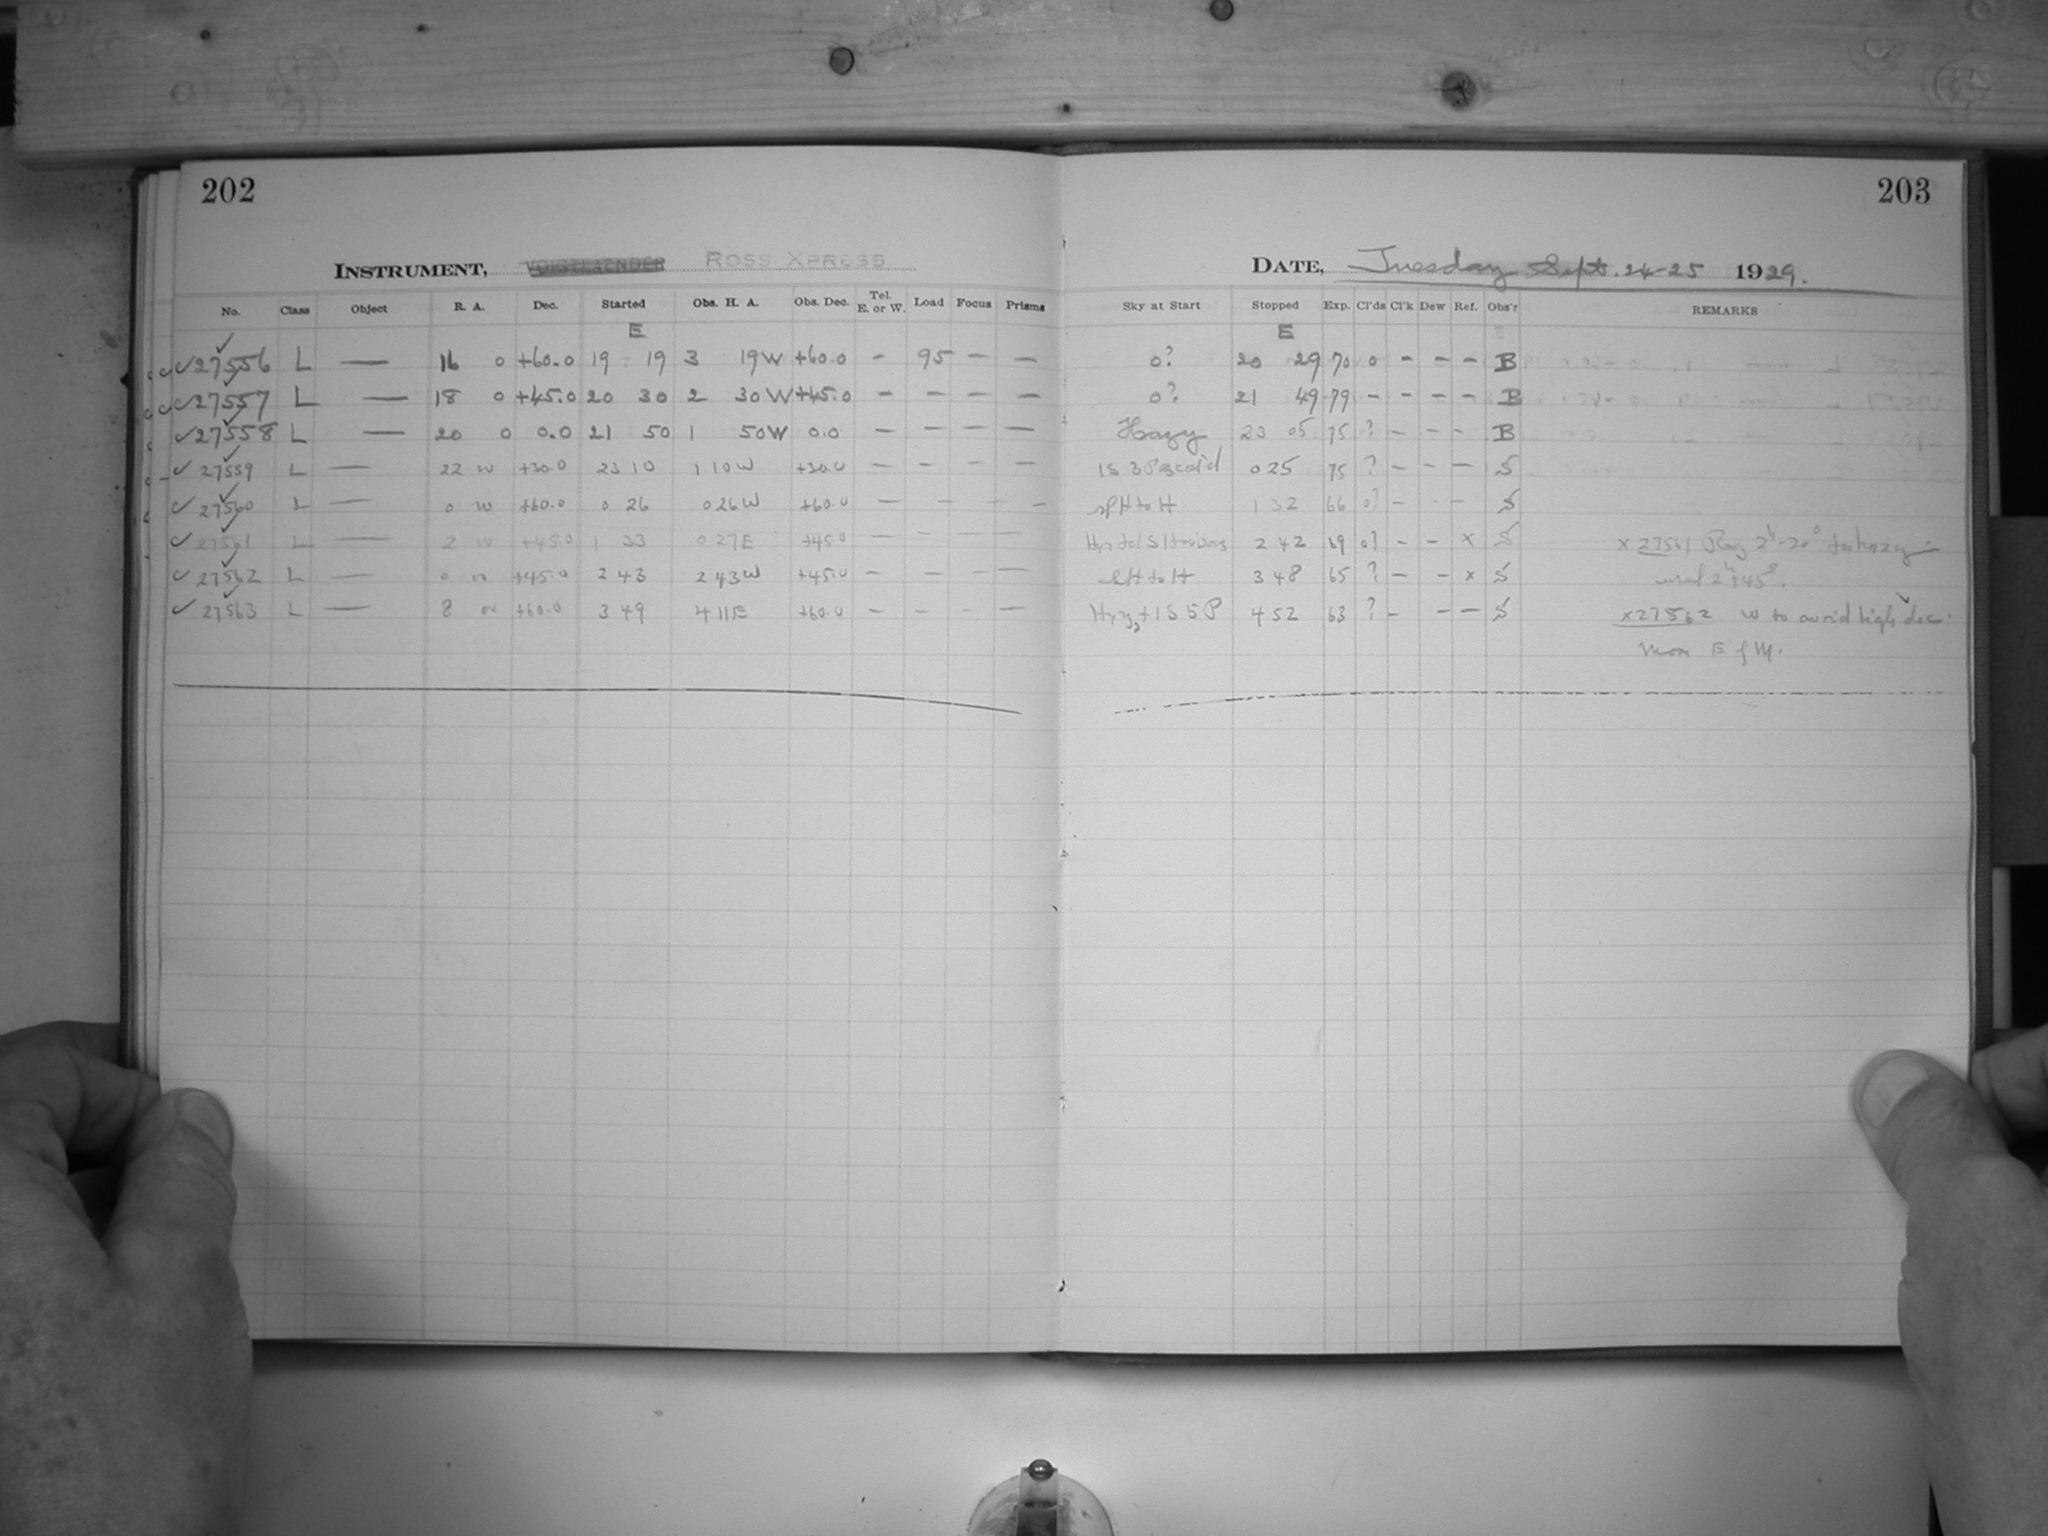 202
203
INSTRUMENT, VOIGTLAENDER ROSS XPRESS
DATE, Tuesday Sept. 24-25 1929.
No. Class Object R. A. Dec. Started Obs. H. A. Obs. Dec. Tel. E. or W. Load Focus Prisms Sky at Start Stopped Exp. Cl'ds Cl'k Dew Ref. Obs'r REMARKS
E E
✓27556 L — 16 0 +60.0 19 19 3 19W +60.0 - 95 - - 0? 20 29 70 0 - - - B
✓27557 L — 18 0 +45.0 20 30 2 30W +45.0 - - - - 0? 21 49 79 - - - - B
✓27558 L — 20 0 0.0 21 50 1 50W 0.0 - - - - Hazy 23 05 75 ? - - - B
✓27559 L — 22 +30.0 23 10 1 10W +30.0 - - - - 1S 0 25 75 ? - - - S
✓27560 L — 0 +60.0 0 26 0 26W +60.0 - - - - H to H 1 32 66 0? - - - S
✓27561 L — 2 +45.0 1 33 0 27E +45.0 - - - - 2 42 69 0? - - x S x 27561 2h -20° too hazy
✓27562 L — 0 +45.0 2 43 2 43W +45.0 - - - - H to H 3 48 65 ? - - x S used 2h +45°.
✓27563 L — 8 +60.0 3 49 4 11E +60.0 - - - - + 1S 5P 4 52 63 ? - - - S x27562 W to avoid high dec.
Moon E of M.